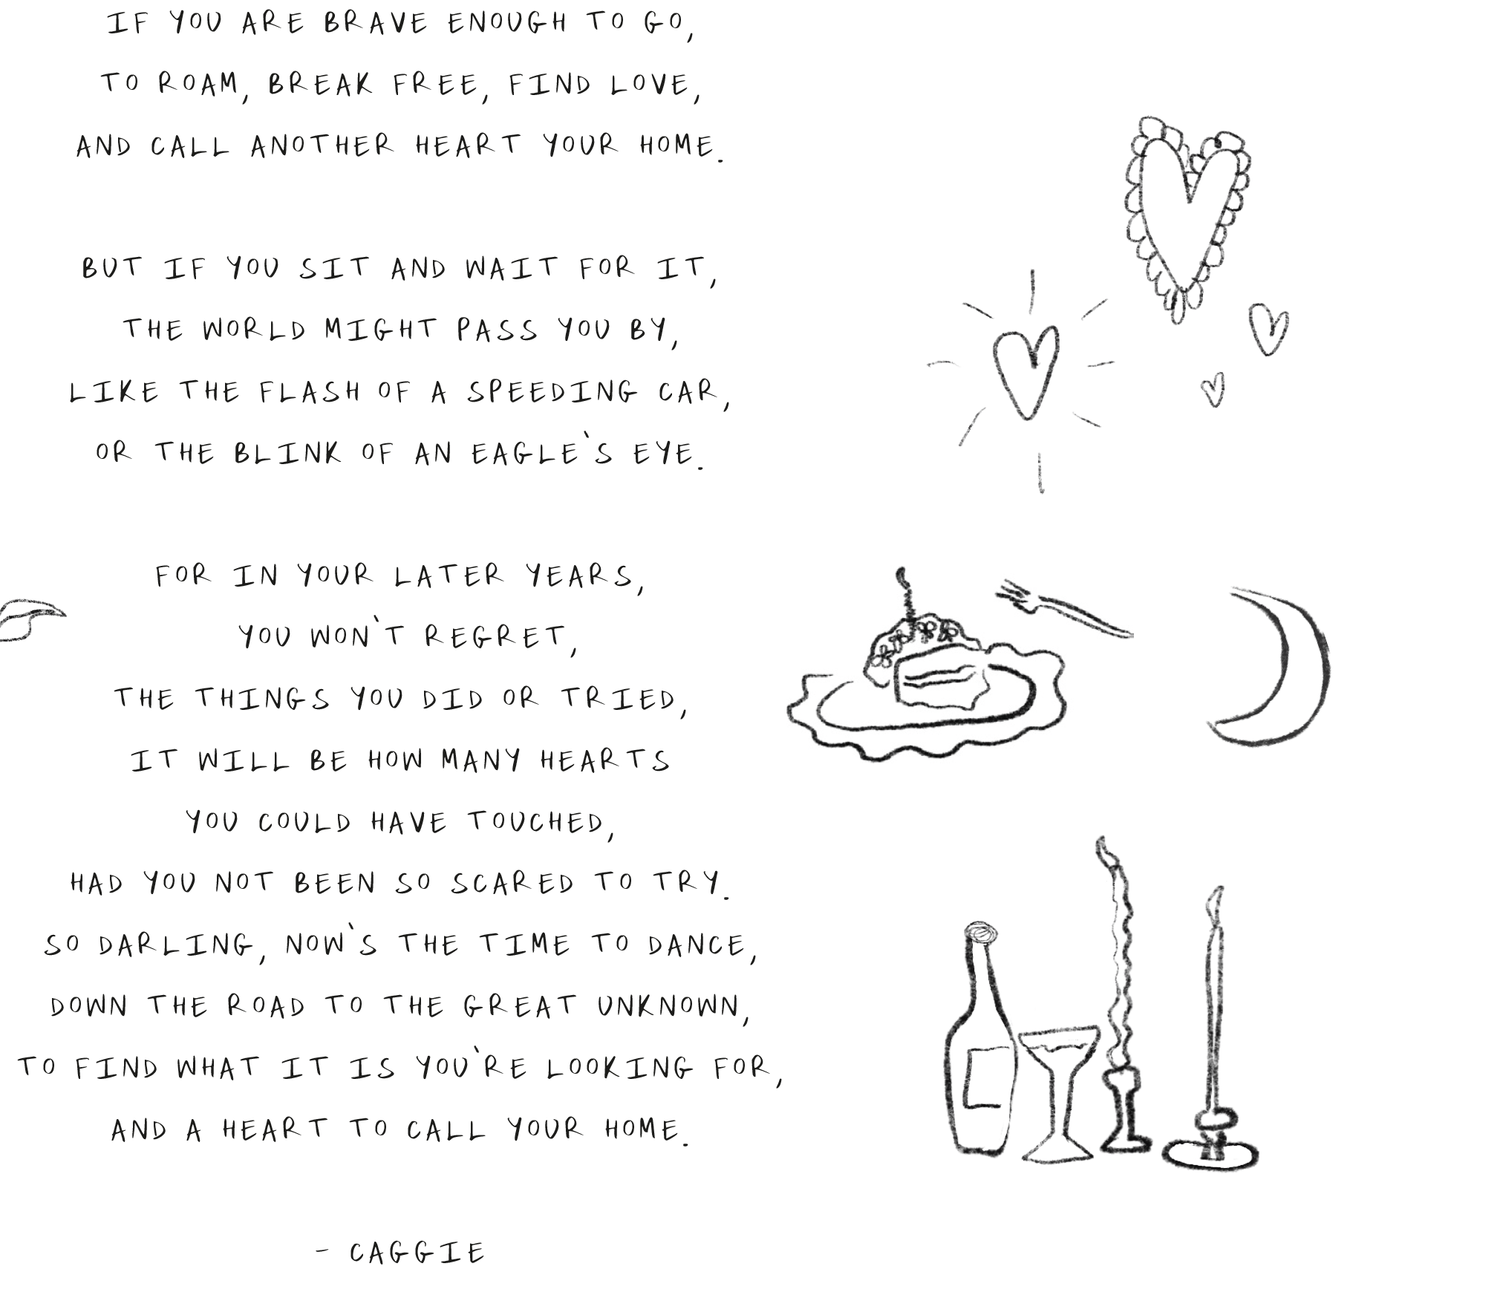 IF YOU ARE BRAVE ENOUGH TO GO,
TO ROAM, BREAK FREE, FIND LOVE,
AND CALL ANOTHER HEART YOUR HOME.
BUT IF YOU SIT AND WAIT FOR IT,
THE WORLD MIGHT PASS YOU BY,
LIKE THE FLASH OF A SPEEDING CAR,
OR THE BLINK OF AN EAGLE'S EYE.
FOR IN YOUR LATER YEARS,
YOU WON'T REGRET,
THE THINGS YOU DID OR TRIED,
IT WILL BE HOW MANY HEARTS
YOU COULD HAVE TOUCHED,
HAD YOU NOT BEEN SO SCARED TO TRY.
SO DARLING, NOW'S THE TIME TO DANCE,
DOWN THE ROAD TO THE GREAT UNKNOWN,
TO FIND WHAT IT IS YOU'RE LOOKING FOR,
AND A HEART TO CALL YOUR HOME.
- CAGGIE